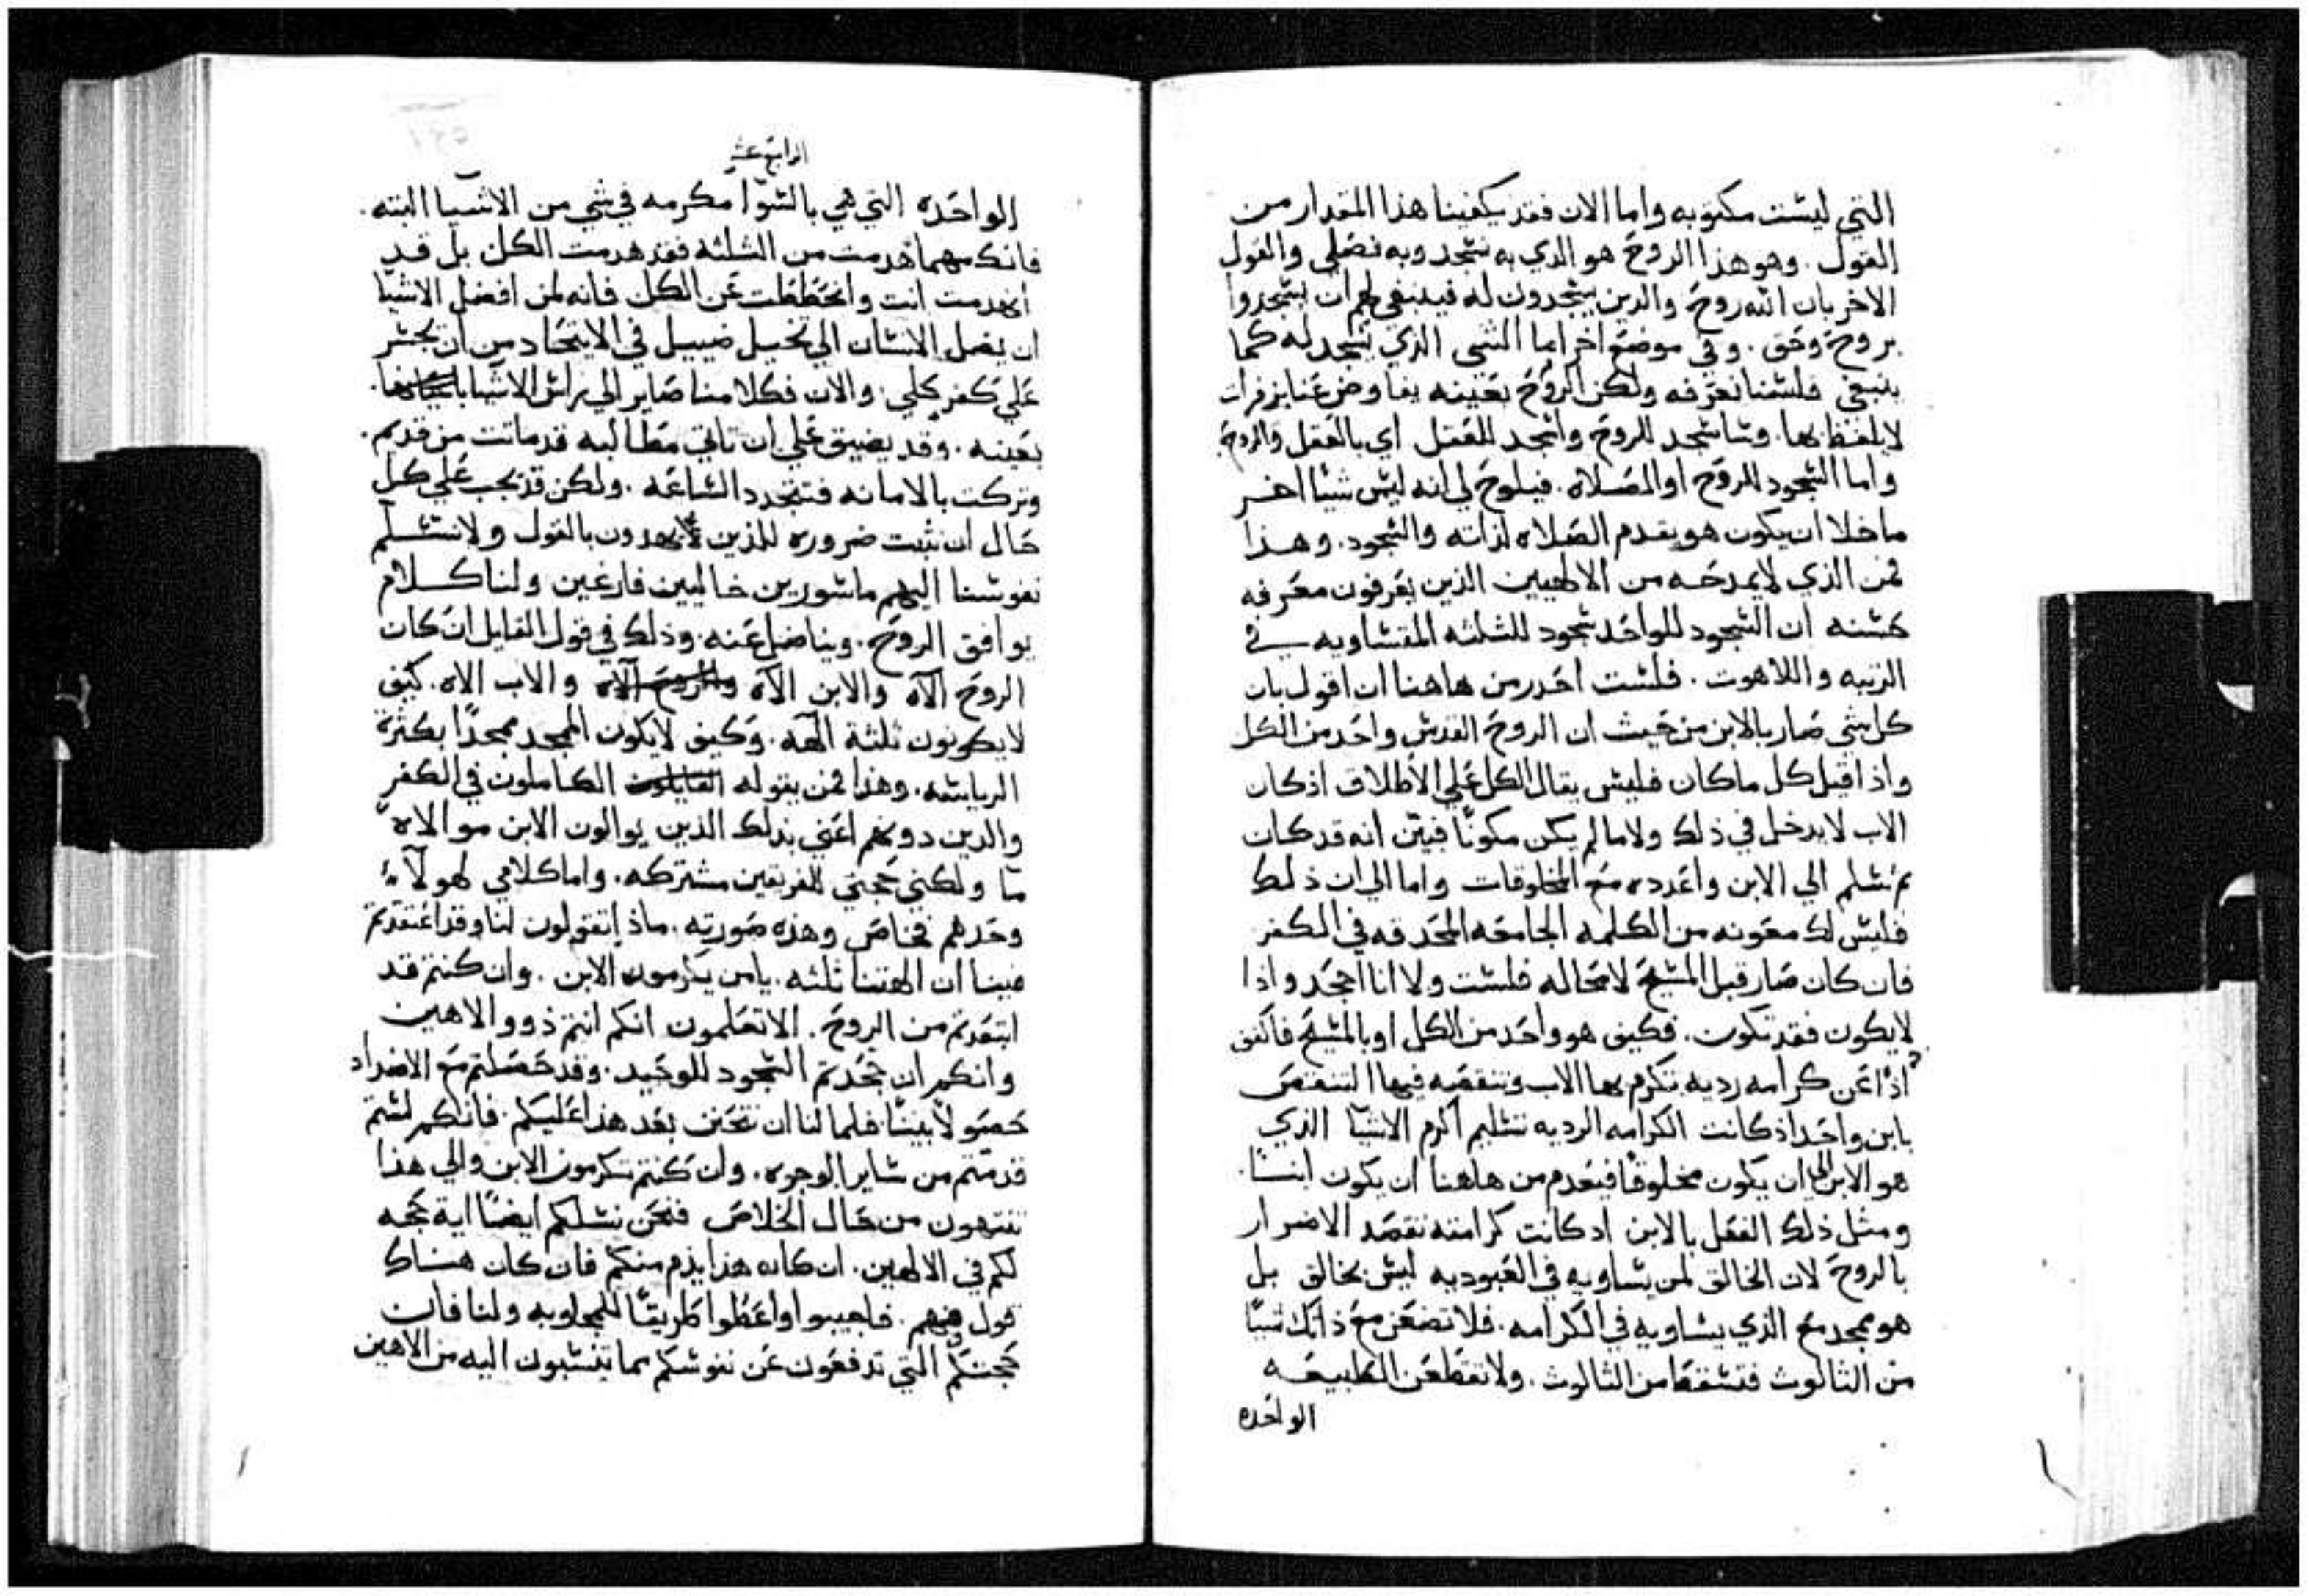 التي ليست مكتوبه واما الان فقد يكفينا هذا المقدار من
القول. وهو هذا الروح هو الدي به نسجد وبه نصلي والقول
الاخر بان الله روح والدين يسجدون له فينبغي لهم ان يسجدوا
بروح وحق. وفي موضع اخر اما الشي الدي نسجد له كما
ينبغي فلسنا نعرفه ولكن الروح بعينه يفاوض عنا بزفرات
لا يلفظ بها. وساسجد للروح واسجد للعقل اي بالعقل والروح
واما السجود للروح او الصلاه. فيلوح لي انه ليس شيئا اخر
ما خلا ان يكون هو يقدم الصلاه لذاته والسجود. وهذا
فمن الذي لا يمدحه من الالهيين الذين يعرفون معرفه
حسنه ان السجود للواحد سجود للثلثه المتساويه في
الرتبه واللاهوت. فلست احدر من هاهنا ان اقول بان
كل شي صار بالابن من حيث ان الروح القدس واحد من الكل
واذا قيل كل ما كان فليس يقال الكل علي الاطلاق اذ كان
الاب لا يدخل في ذلك ولا ما لم يكن مكونًا فبيّن انه قد كان
ثم نسلم الي الابن واعدده مع المخلوقات واما الي ان ذلك
فليس لك معونه من الكلمه الجامعه المحدقه في الكفر
فان كان صار قبل المسيح لا محاله فلست ولا انا اجحد واذا
لا يكون فقد تكون. فكيف هو واحد من الكل او بالمسيح فاكفف
اذًا عن كرامه رديه تكرم بها الاب وتنقصه فيها التنقص
بابن واحد اذ كانت الكرامه الرديه تسليم اكرم الاشيا الذي
هو الابن الي ان يكون مخلوقًا فيعدم من هاهنا ان يكون ابنًا.
ومثل ذلك الفعل بالابن اد كانت كرامته تقصد الاضرار
بالروح لان الخالق لمن يساويه في العبوديه ليس بخالق بل
هو ممجد مع الذي يساويه في الكرامه. فلا تضعن مع ذاتك شيًا
من الثالوث فتسقط من الثالوث. ولا تقطعن الطبيعه
الواحده
الرابع عشر
الواحده التي هي بالسوا مكرمه في شي من الاشيا البته.
فانك مهما هدمت من الثلثه فقد هدمت الكل بل قد
انهدمت انت وانحططت عن الكل فانه لمن افضل الاشيا
ان يصل الانسان الي تخيل ضييل في الاتحاد من ان يجسر
علي كفر كلي. والان فكلامنا صاير الي راس الاشيا باعيانها.
بعينه. وقد يضيق علي ان تاتي مطالبه قد ماتت من قديم.
وتركت بالامانه فتتجدد الساعه. ولكن قد يجب علي كل
حال ان نثبت ضروره للذين يهدون بالقول ولا نسلم
نفوسنا اليهم ماسورين خاليين فارغين ولنا كلام
يوافق الروح. ويناضل عنه. وذلك في قول القايل ان كان
الروح الاه والابن الاه والروح الاه والاب الاه. كيف
لا يكونون ثلثة الهه. وكيف لا يكون الممجد ممجدًا بكثرة
الرياسه. وهذا فمن يقوله القايلون الكاملون في الكفر
والدين دونهم اعني بدلك الذين يوالون الابن موالاه
ما ولكني حجتي للفريقين مشتركه. واما كلامي لهولاء
وحدهم فخاص وهذه صورته. ماذا تقولون لنا وقد اعتقدتم
فينا ان الهتنا ثلثه. يا من يكرمون الابن. وان كنتم قد
ابتعدتم من الروح. الا تعلمون انكم انتم ذوو الاهين
وانكم ان جحدتم السجود للوحيد. وقد حصلتم مع الاضداد
حصولا بينًا. فلما لنا ان نتحنن بعد هذا عليكم. فانكم لستم
قد متم من ساير الوجوه. وان كنتم تكرمون الابن والي هذا
تنتهون من حال الخلاص فنحن نسلكم ايضًا اية حجه
لكم في الالهين. ان كان هذا يذم منكم فان كان هناك
قول فهم. فاجيبوا او اعطوا طريقًا للمجاوبه ولنا فان
حجتكم التي تدفعون عن نفوسكم مما تنسبون اليه من الاهين